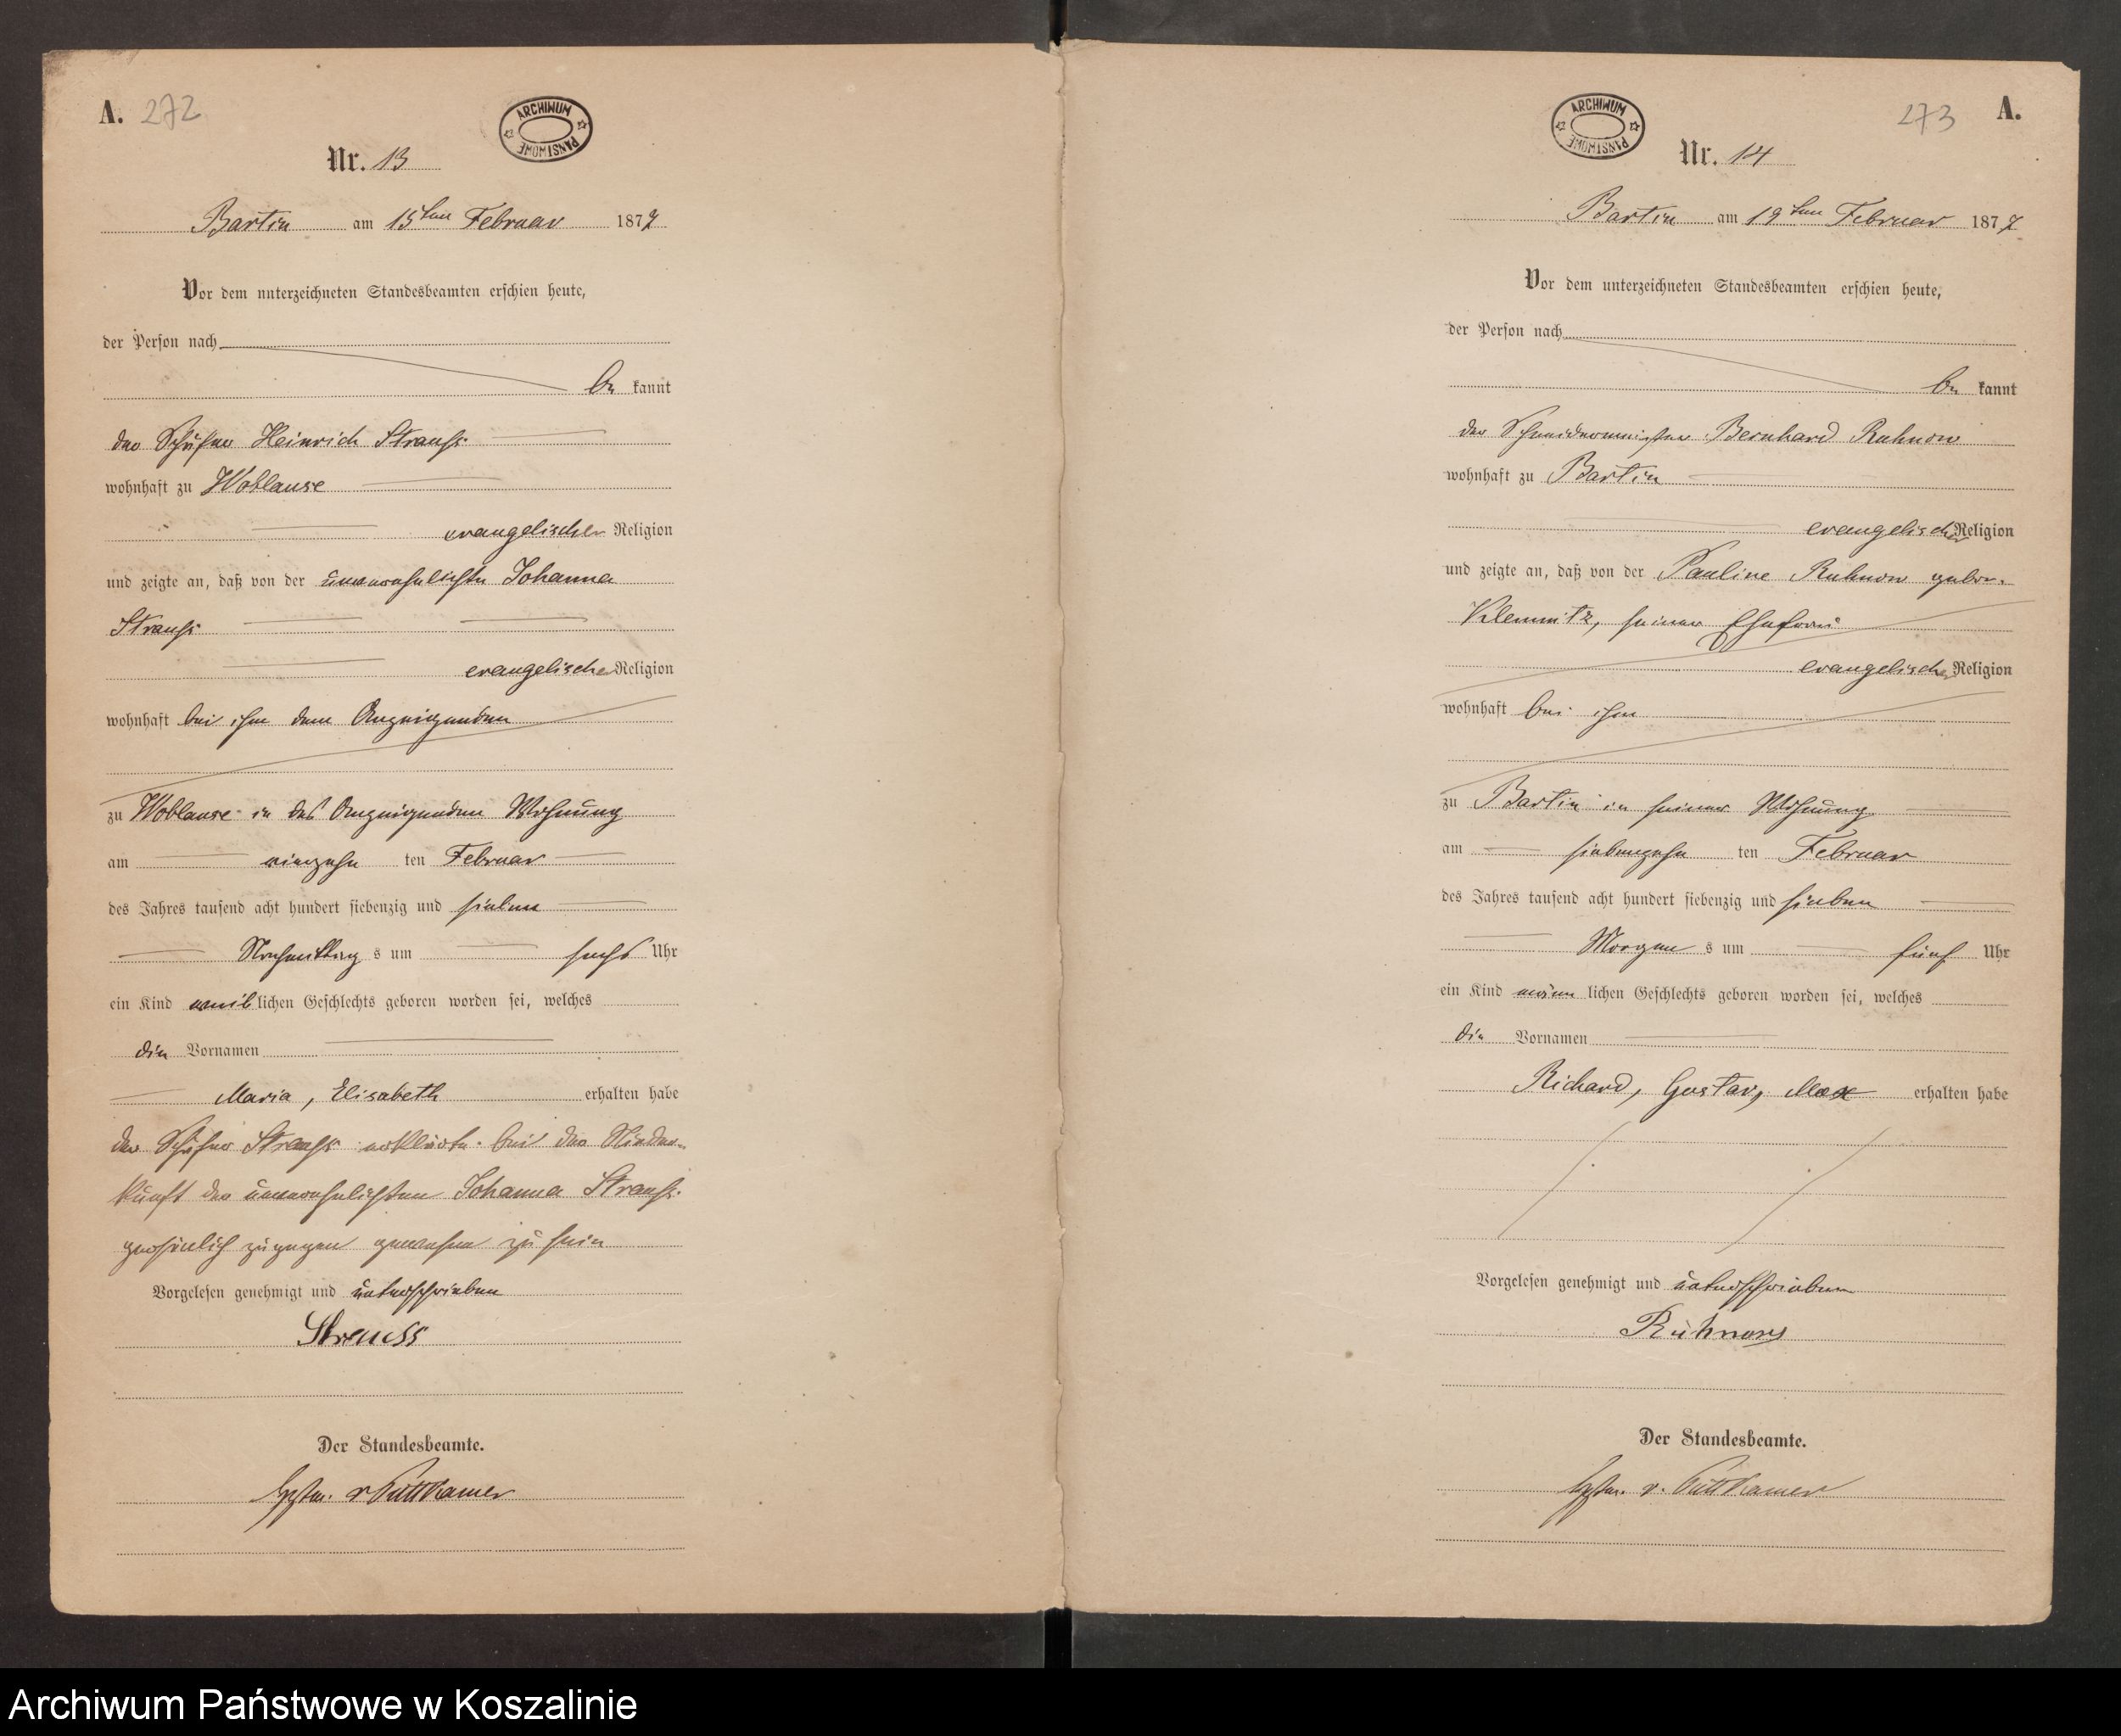 A. 272
ARCHIWUM PAŃSTWOWE
Nr. 13
Bartin am 15ten Februar 1877
Vor dem unterzeichneten Standesbeamten erschien heute,
der Person nach
be kannt
der Schäfer Heinrich Strauss
wohnhaft zu Woblanse
evangelischer Religion
und zeigte an, daß von der unverehelichte Johanna
Strauss
evangelischer Religion
wohnhaft bei ihm dem Anzeigenden
zu Woblanse in des Anzeigenden Wohnung
am vierzehn ten Februar
des Jahres tausend acht hundert siebenzig und sieben
Nachmittag s um sechs Uhr
ein Kind weib lichen Geschlechts geboren worden sei, welches
die Vornamen
Maria, Elisabeth erhalten habe
der Schäfer Strauss erklärte bei der Nieder-
kunft der unverehelichten Johanna Strauss
persönlich zugegen gewesen zu sein
Vorgelesen genehmigt und unterschrieben
Strauss
Der Standesbeamte.
v Puttkamer
273 A.
ARCHIWUM PAŃSTWOWE
Nr. 14
Bartin am 19ten Februar 1877
Vor dem unterzeichneten Standesbeamten erschien heute,
der Person nach
be kannt
der Schneidermeister Bernhard Ruhnow
wohnhaft zu Bartin
evangelischer Religion
und zeigte an, daß von der Pauline Ruhnow gebor.
Klemmitz, seiner Ehefrau
evangelischer Religion
wohnhaft bei ihm
zu Bartin in seiner Wohnung
am siebenzehn ten Februar
des Jahres tausend acht hundert siebenzig und sieben
Morgen s um fünf Uhr
ein Kind männ lichen Geschlechts geboren worden sei, welches
die Vornamen
Richard, Gustav, Max erhalten habe
Vorgelesen genehmigt und unterschrieben
Ruhnow
Der Standesbeamte.
v. Puttkamer
Archiwum Państwowe w Koszalinie